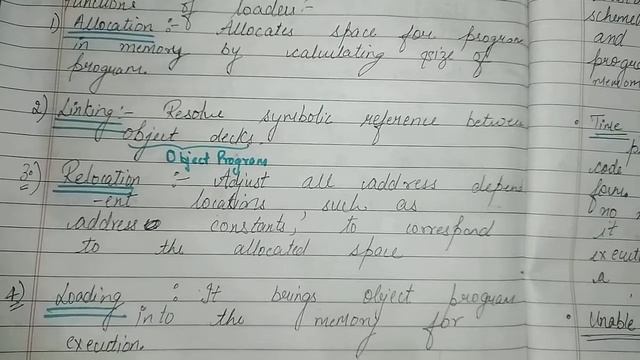 functions of loader:-
1) Allocation :- Allocates space for program
in memory by calculating size of
program.
2) Linking:- Resolve symbolic reference between
object decks.
Object Program
3) Relocation :- Adjust all address depend
-ent locations, such as
address constants, to correspond
to the allocated space
4) Loading : It brings object program
into the memory for
execution.
scheme
and
progra
memor
• Time
p
code
four
no
it
execut
a
• Unable